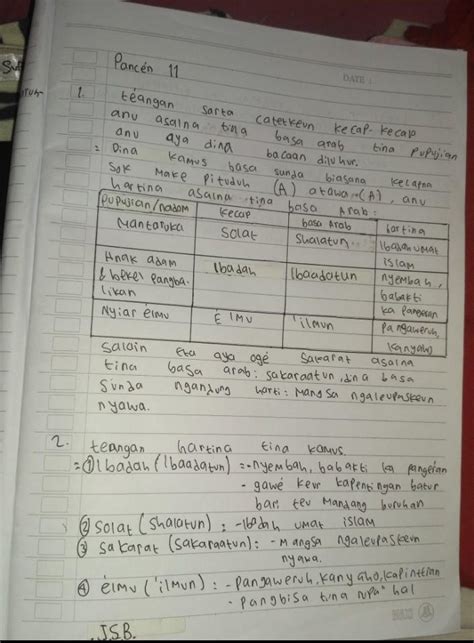 DATE :
Pancén 11
1. téangan sarta catetkeun kecap-kecap
anu asalna tina basa arab tina pupujian
anu aya dina bacaan diluhur.
= Dina kamus basa sunda biasana kecapna
sok make pituduh (A) atawa (A), anu
hartina asalna tina basa Arab:
Pupujian/nadom kecap basa Arab hartina
Mantaruka Solat Shalatun Ibadah umat islam
Anak adam & bekel pangbalikan Ibadah Ibaadatun nyembah, babakti ka pangeran
Nyiar élmu Elmu 'ilmun pangaweruh, kanyaho
Salain eta aya ogé sakarat asalna
tina basa arab: sakaraatun, dna basa
Sunda ngandung harti: Mangsa ngaleupaskeun
nyawa.
2. teangan hartina tina kamus.
= ① Ibadah (Ibaadatun) = - nyembah, babakti ka pangeran
- gawé keur kapentingan batur
bari teu Mandang buruhan
② Solat (Shalatun) : - Ibadah umat islam
③ Sakarat (Sakaraatun) : - Mangsa ngaleupaskeun
nyawa.
④ élmu ('ilmun) : - Pangaweruh, kanyaho, kapinteran
- Pangbisa tina rupa² hal
J.S.B.